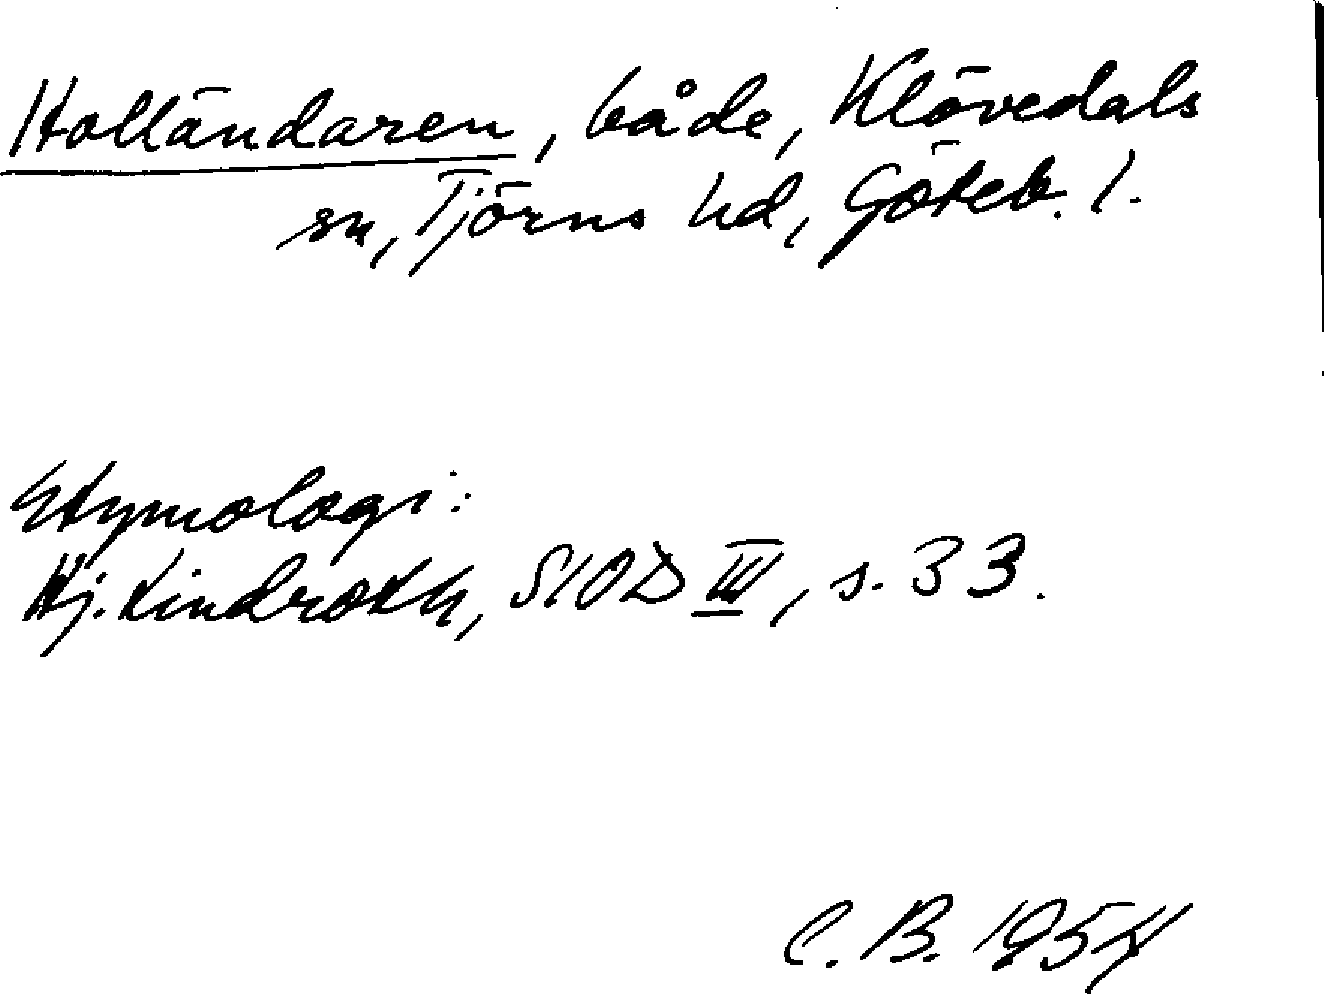 Holländaren, både, Klövedals
sn, Tjörns hd, Göteb. l.
Etymologi:
Hj. Lindroth, SIOD III, s. 33.
C. B. 1954